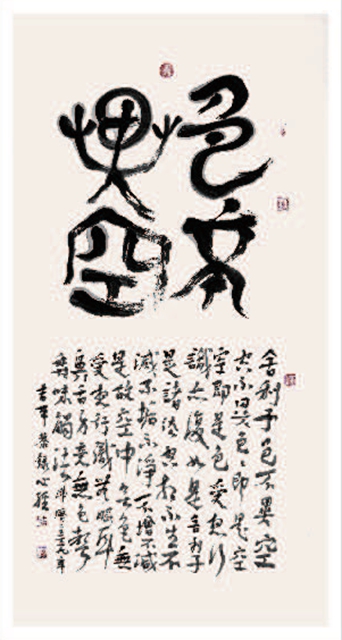 色不
異空
舍利子色不異空
空不異色色即是空
空即是色受想行
識亦復如是舍利子
是諸法空相不生不
滅不垢不淨不增不減
是故空中無色無
受想行識無眼耳
鼻舌身意無色聲
香味觸法
恭錄心經